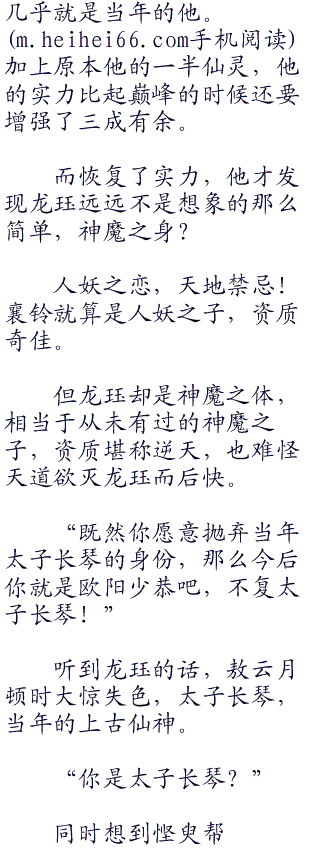 几乎就是当年的他。
(m.heihei66.com手机阅读)
加上原本他的一半仙灵，他
的实力比起巅峰的时候还要
增强了三成有余。
而恢复了实力，他才发
现龙珏远远不是想象的那么
简单，神魔之身？
人妖之恋，天地禁忌！
襄铃就算是人妖之子，资质
奇佳。
但龙珏却是神魔之体，
相当于从未有过的神魔之
子，资质堪称逆天，也难怪
天道欲灭龙珏而后快。
“既然你愿意抛弃当年
太子长琴的身份，那么今后
你就是欧阳少恭吧，不复太
子长琴！”
听到龙珏的话，敖云月
顿时大惊失色，太子长琴，
当年的上古仙神。
“你是太子长琴？”
同时想到悭臾帮